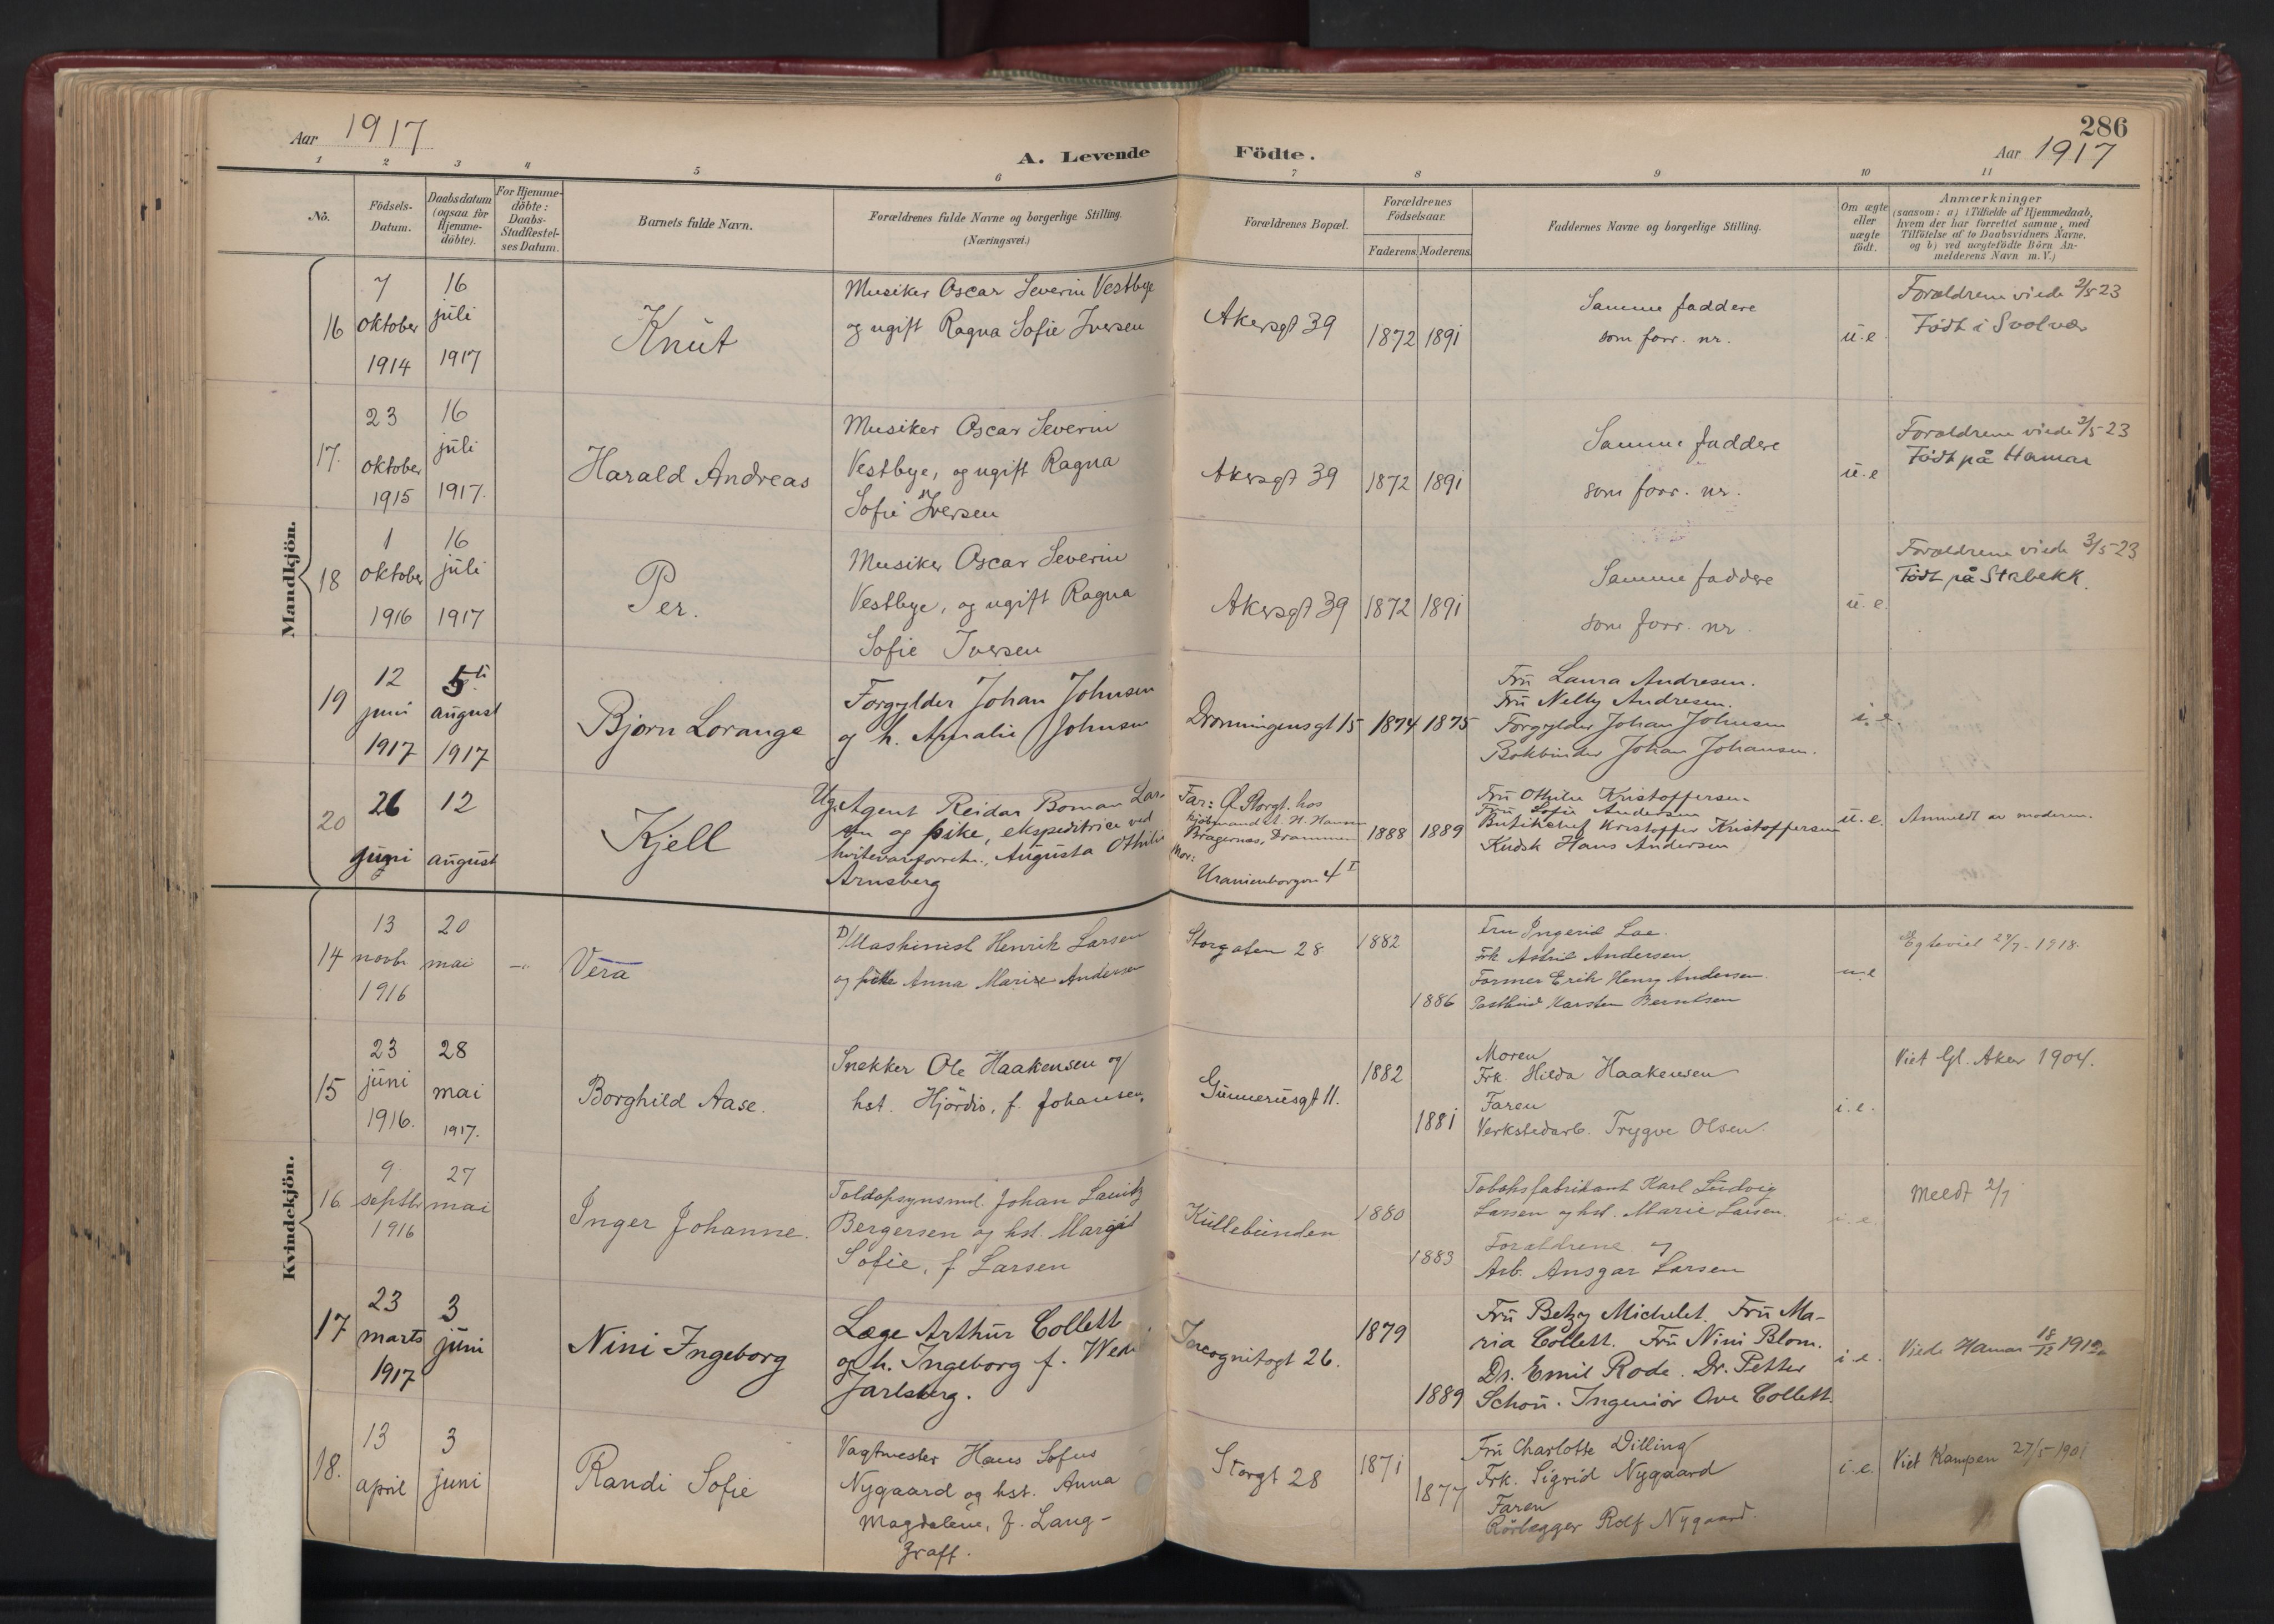 Aar 1917
A. Levende Födte.
286
Aar 1917
1 2 3 4 5 6 7 8 9 10 11
No.
Födsels-Datum.
Daabsdatum (ogsaa for Hjemme-döbte).
For Hjemme-döbte: Daabs-Stadfæstel-ses Datum.
Barnets fulde Navn.
Forældrenes fulde Navne og borgerlige Stilling. (Næringsvei.)
Forældrenes Bopæl.
Forældrenes Födselsaar.
Faderens. Moderens.
Faddernes Navne og borgerlige Stilling.
Om ægte eller uægte födt.
Anmærkninger
(saasom: a) i Tilfælde af Hjemmedaab,
hvem der har forrettet samme, med
Tilföielse af to Daabsvidners Navne,
og b) ved uægtefödte Börn An-
melderens Navn m. V.)
Mandkjön.
16
7 oktober 1914
16 juli 1917
Knut
Musiker Oscar Severin Vestbye
og ugift Ragna Sofie Iversen
Akersgt 39
1872 1891
Samme faddere
som forr. nr.
u.e
Forældrene viede 2/5 23
Född i Svolvær
17.
23 oktober 1915
16 juli 1917.
Harald Andreas
Musiker Oscar Severin
Vestbye, og ugift Ragna
Sofie Iversen
Akersgt 39
1872 1891
Samme faddere
som forr. nr.
u.e
Forældrene viede 3/5 23
Födt på Hamar
18
1 oktober 1916
16 juli 1917
Per.
Musiker Oscar Severin
Vestbye, og ugift Ragna
Sofie Iversen
Akersgt 39
1872 1891
Samme faddere
som forr. nr
u.e.
Forældrene viede 3/5 23
Födt på Stabekk.
19
12 juni 1917
5 august 1917
Bjørn Lorange
Forgylder Johan Johnsen
og h. Amalie Johnsen
Dronningensgt 15
1874 1875
Fru Laura Andresen.
Fru Nelly Andresen.
Forgylder Johan Johnsen
Bokbinder Johan Johansen.
i.e.
20
26 juni
12 august
Kjell
Ug. Agent Reidar Boman Lar-
sen og pike, ekspeditrice ved
hvitevareforretn., Augusta Othilie
Arnsberg
Far: Storgt. hos
kjøbmand H. Hansen
Bragernes, Drammen
Mor:
Uranienborgvn 4 I
1888 1889
Fru Othilie Kristoffersen
Fru Sofie Andersen
Butikchef Kristoffer Kristoffersen
Kudsk Hans Andersen
u.e.
Anmeldt av moderen.
Kvindekjön.
14
13 novbr 1916
20 mai
Vera
Maskinist Henrik Larsen
og pike Anna Marie Andersen
Storgaten 28
1882
1886
Fru Ingerid Lae.
Frk Astrid Andersen
Former Erik Henry Andersen
Postbud Karsten Berntsen
u.e
Egteviet 29/7-1918.
15
23 juni 1916.
28 mai 1917.
Borghild Aase.
Snekker Ole Haakensen og
hst. Hjördis, f. Johansen,
Gunnerusgt 11.
1882
1881
Moren
Frk. Hilda Haakensen
Faren
Verkstedarb. Trygve Olsen.
i.e.
Viet Gl. Aker 1904.
16
9 septbr 1916
27 mai
Inger Johanne.
Toldopsynsmd. Johan Lauritz
Bergersen og hst. Margit
Sofie, f Larsen
Kullebunden
1880
1883
Tobaksfabrikant Karl Ludvig
Larsen og hst. Marie Larsen.
Forældrene og
Arb. Ansgar Larsen
i.e.
Meldt 2/7
17
23 marts 1917
3 juni
Nini Ingeborg
Læge Arthur Collett
og h. Ingeborg f. Wedel
Jarlsberg.
Incognitogt 26.
1879
1889
Fru Betzy Michelet. Fru Ma-
ria Collett. Fru Nini Blom.
Dr. Emil Rode. Dr. Petter
Schou. Ingeniør Ove Collett.
i.e.
Viede Hamar 18/12 1912
18.
13 april
3 juni
Randi Sofie
Vagtmester Hans Sofus
Nygaard og hst. Anna
Magdalene, f. Lang-
graff.
Storgt 28
1871
1877
Fru Charlotte Dilling
Frk. Sigrid Nygaard
Faren
Rörlægger Rolf Nygaard.
i.e.
Viet Kampen 27/5 1901